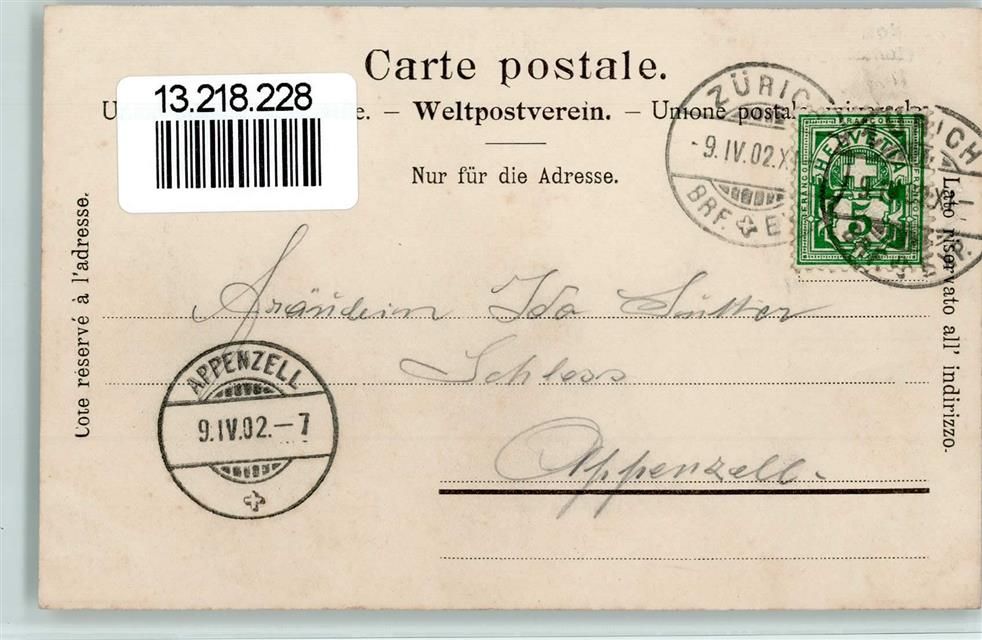 Carte postale.
13.218.228
U e. – Weltpostverein. – Unione postale
Nur für die Adresse.
ZÜRICH
- 9. IV. 02. X
BRF. E
FRANCO
HELVETIA
5
Côte réservé à l'adresse.
Lato riservato all' indirizzo.
Fräulein Ida Sutter
Schloss
Appenzell.
APPENZELL
9. IV. 02. – 7